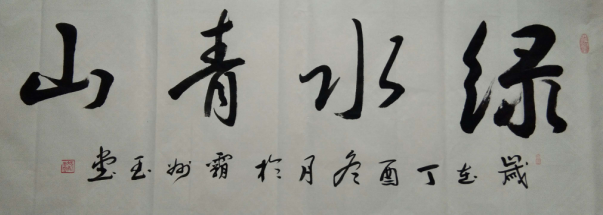 绿水青山
岁在丁酉冬月于霸州玉堂